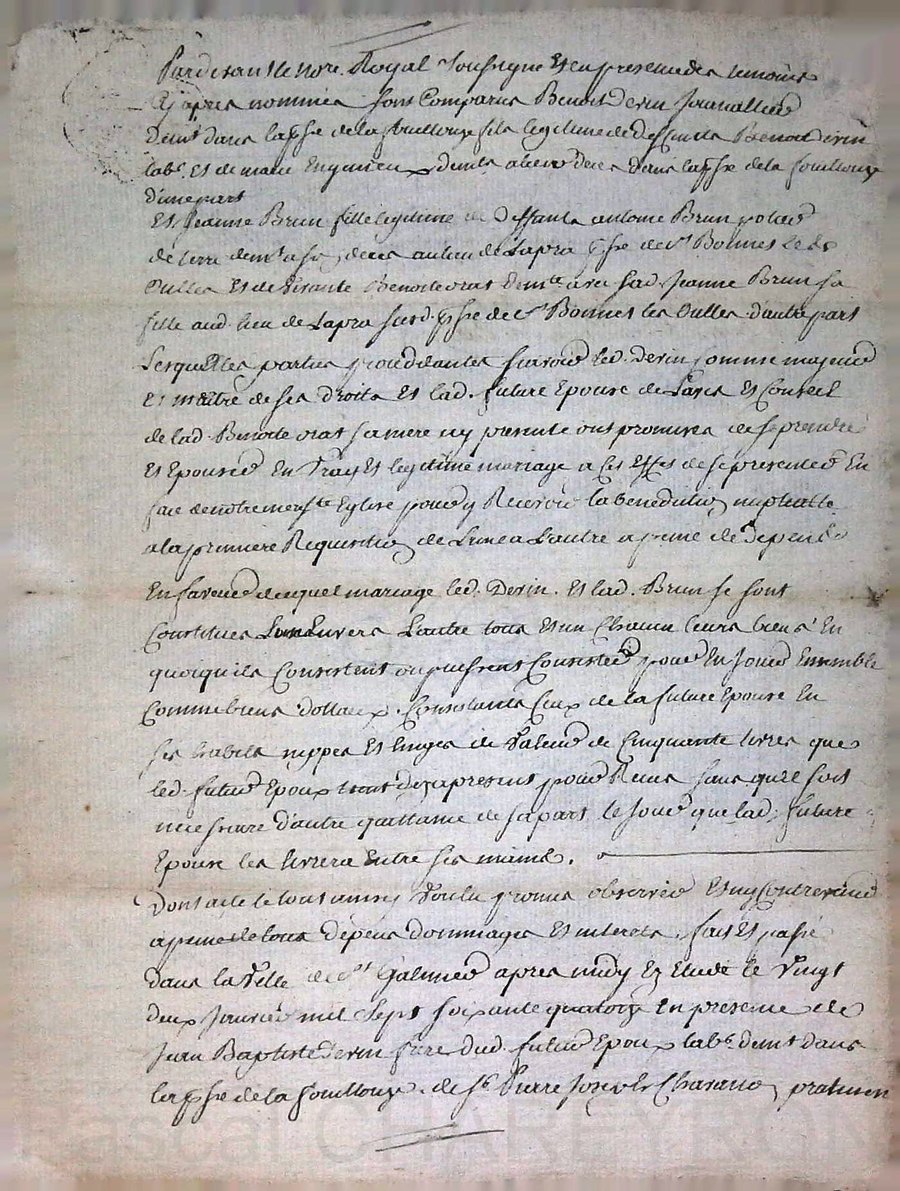 Pardevant le no.re Royal Soussigné et en presence des temoins
cy apres nommés sont comparus Benoit Devin Journallier
dem.t dans la p.sse de la fouillouze fils legitime de deffuncts Benoit Devin
lab.r et de marie dem.ts a leur deces dans la p.sse de la fouillouze
d'une part
Et Jeanne Brun fille legitime de deffunt antoine Brun potier
de terre dem.t a son deces au lieu de Lapra p.sse de S.t Bonnet les
Oulles et de vivante Benoite orat dem.te avec lad. Jeanne Brun sa
fille aud. lieu de Lapra susd. p.sse de S.t Bonnet les Oulles d'autre part
Lesquelles parties procedantes scavoir led. Devin comme majeur
et maitre de ses droits et lad. future Epouse de L'avis et Conseil
de lad. Benoite orat sa mere icy presente ont promis de se prendre
et Epouser En vray et legitime mariage a ces effes de se presenter En
face de notre mere s.te Eglise pour y Recevoir la benediction nuptialle
a la premiere Requisition de L'une a L'autre a peine de depens
En faveur duquel mariage led. Devin et lad. Brun se sont
Constitués L'un Envers L'autre tous et un chacun leurs biens En
quoiqu'ils Consistent ou puissent Consister pour En Jouir Ensemble
Comme biens dottaux. Consistants Ceux de la future Epouse En
ses habits nippes et linges de valeur de Cinquante livres que
led. futur Epoux tient dez apresent pour Reçus sans qu'il soit
necessaire d'autre quittance de sa part le jour que lad. future
Epouse les livrera Entre ses mains.
Dont acte le tout ainsy voulu promis observer et n'y Contrevenir
a peine de tous depens dommages et interets. fait et passé
dans la ville de S.t Galmier apres midy En Etude le vingt
deux Janvier mil sept soixante quatorze En presence de
Jean Baptiste Devin frere dud. futur Epoux lab.r dem.t dans
la p.sse de la fouillouze. de S.r Pierre Joseph Chavanon praticien
Pascal CHAREYRON